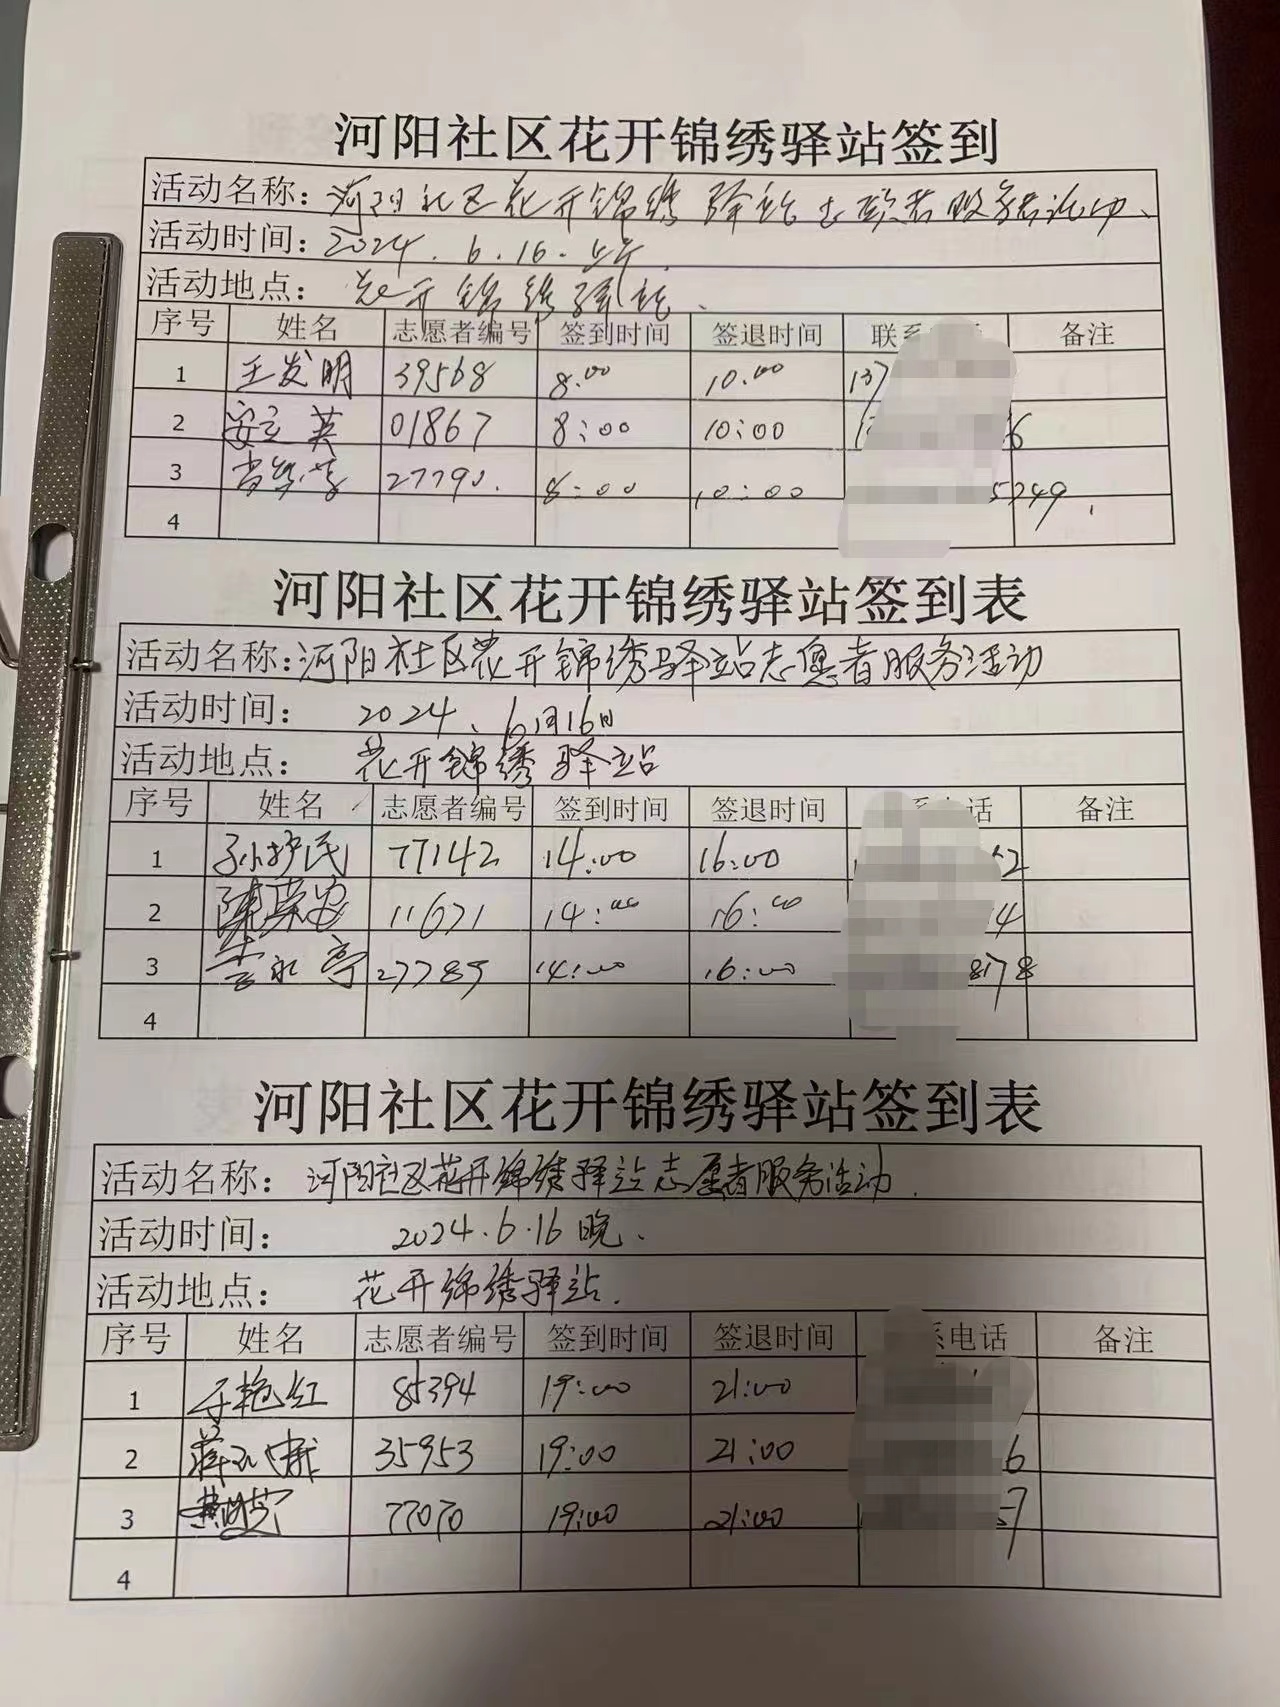 河阳社区花开锦绣驿站签到
活动名称: 河阳社区花开锦绣驿站志愿者服务活动、
活动时间: 2024.6.16.上午
活动地点: 花开锦绣驿站、
序号 姓名 志愿者编号 签到时间 签退时间 联系 备注
1 王发明 39568 8:00 10:00 137
2 安立英 01867 8:00 10:00 6
3 27790. 8:00 10:00 5249
4
河阳社区花开锦绣驿站签到表
活动名称: 河阳社区花开锦绣驿站志愿者服务活动
活动时间: 2024、6月16日
活动地点: 花开锦绣驿站
序号 姓名 志愿者编号 签到时间 签退时间 话 备注
1 孙护民 77142 14:00 16:00 2
2 陈荣安 11671 14:00 16:00 4
3 李永亭 27789 14:00 16:00 8178
4
河阳社区花开锦绣驿站签到表
活动名称: 河阳社区花开锦绣驿站志愿者服务活动.
活动时间: 2024.6.16晚、
活动地点: 花开锦绣驿站.
序号 姓名 志愿者编号 签到时间 签退时间 系电话 备注
1 于艳红 85394 19:00 21:00
2 35953 19:00 21:00 6
3 77070 19:00 21:00 57
4